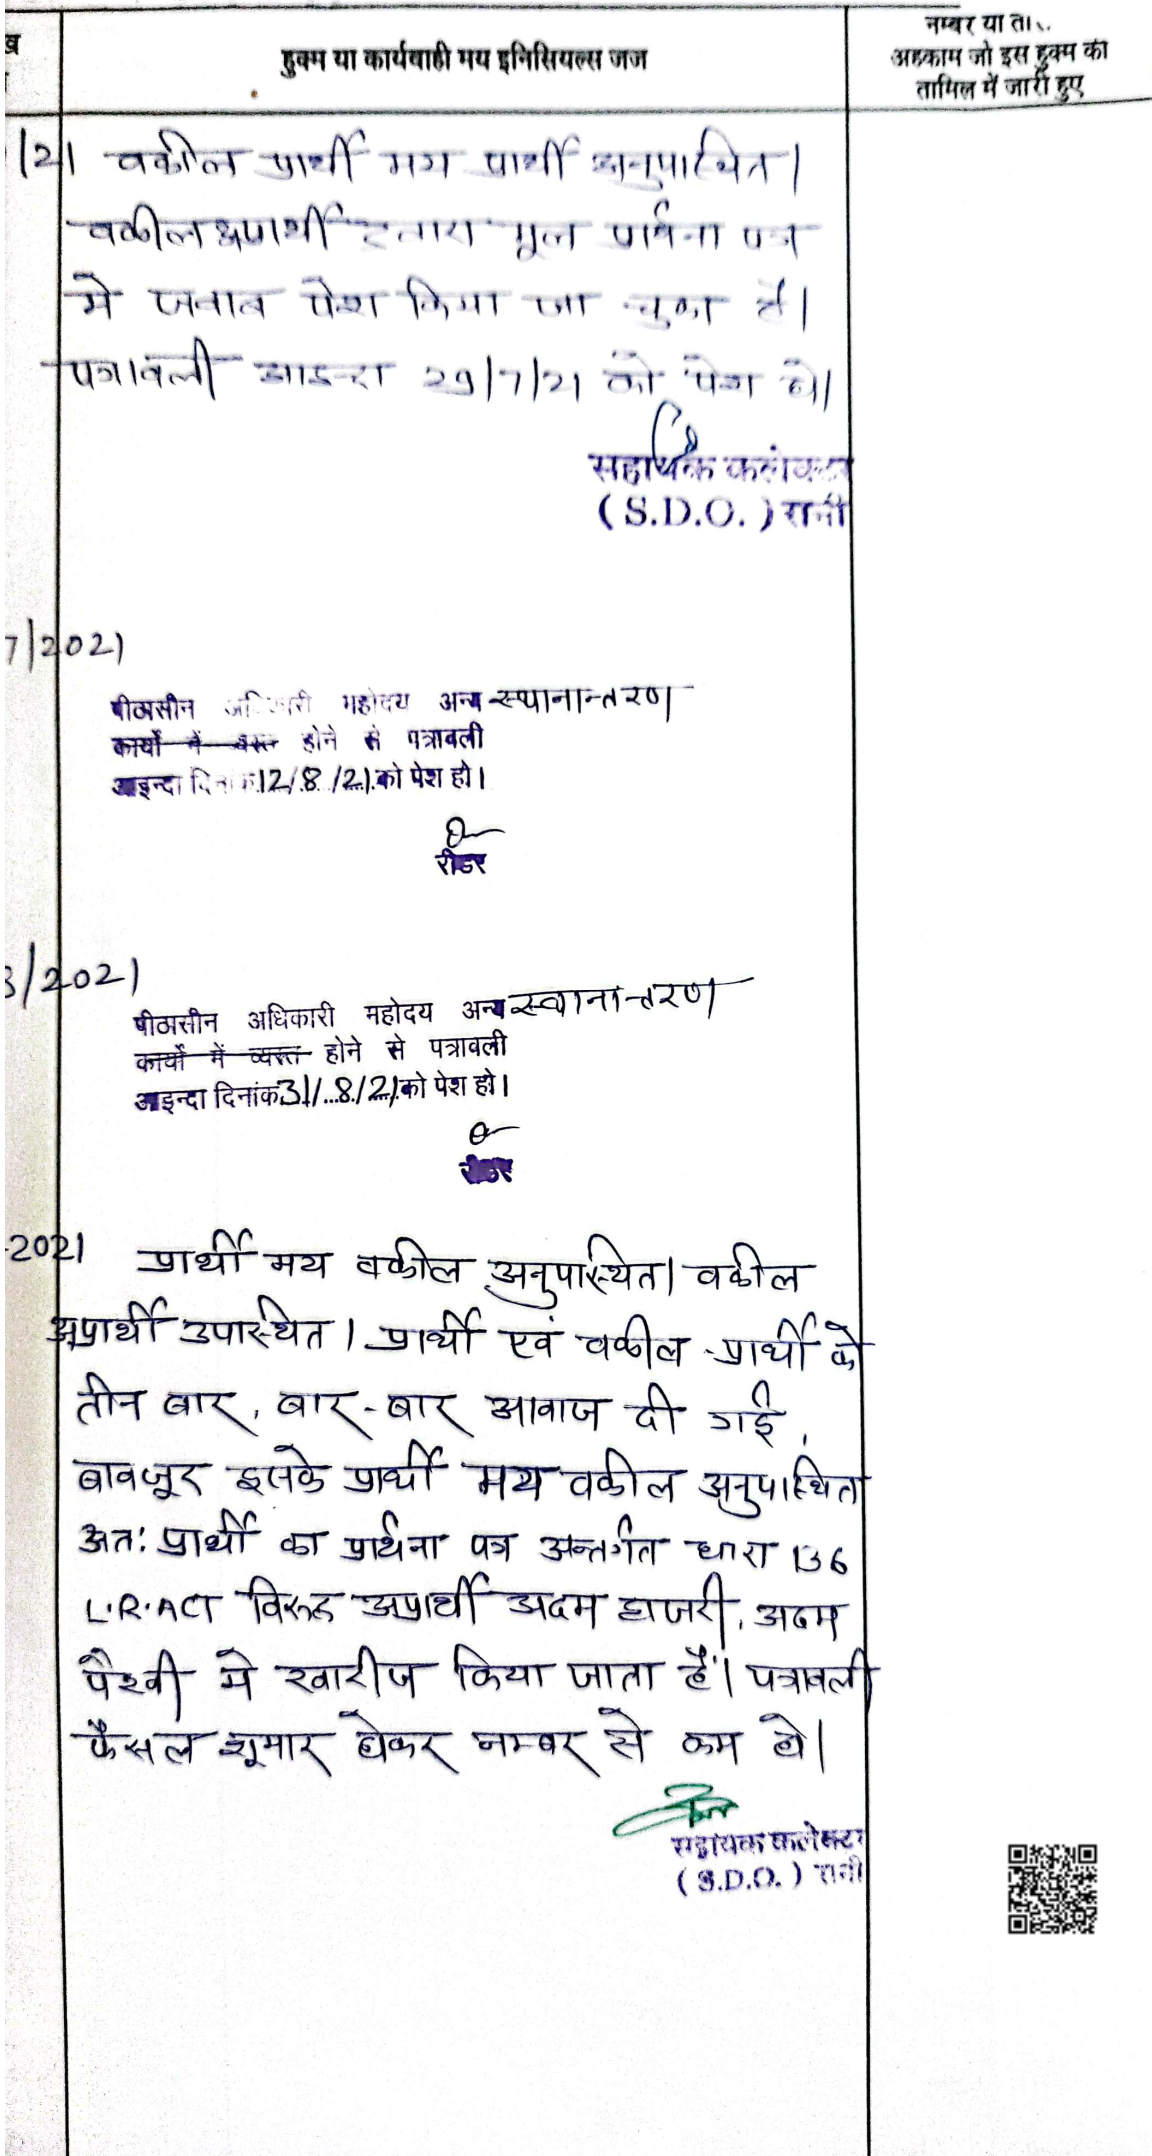 ख
हुक्म या कार्यवाही मय इनिसियल्स जज
नम्बर या ता
अहकाम जो इस हुक्म की
तामिल में जारी हुए
/21 वकील प्रार्थी मय प्रार्थी अनुपस्थित।
वकील अप्रार्थी द्वारा मूल प्रार्थना पत्र
मे जवाब पेश किया जा चुका है।
पत्रावली आइन्दा 29/7/21 को पेश हो।
सहायक कलेक्टर
(S.D.O.) रानी
7/2021
पीठासीन अधिकारी महोदय अन्य स्थानान्तरण
कार्यो में व्यस्त होने से पत्रावली
आइन्दा दिनांक 12/8/21 को पेश हो।
रीडर
8/2021
पीठासीन अधिकारी महोदय अन्य स्थानान्तरण
कार्यो में व्यस्त होने से पत्रावली
आइन्दा दिनांक 31/8/21 को पेश हो।
रीडर
-2021 प्रार्थी मय वकील अनुपस्थित। वकील
अप्रार्थी उपस्थित। प्रार्थी एवं वकील प्रार्थी को
तीन बार, बार-बार आवाज दी गई,
बावजूद इसके प्रार्थी मय वकील अनुपस्थित।
अतः प्रार्थी का प्रार्थना पत्र अन्तर्गत धारा 136
L.R.ACT विरूद्ध अप्रार्थी अदम हाजरी, अदम
पैरवी मे खारीज किया जाता हैं। पत्रावली
फैसल शूमार होकर नम्बर से कम हो।
सहायक कलेक्टर
(S.D.O.) रानी